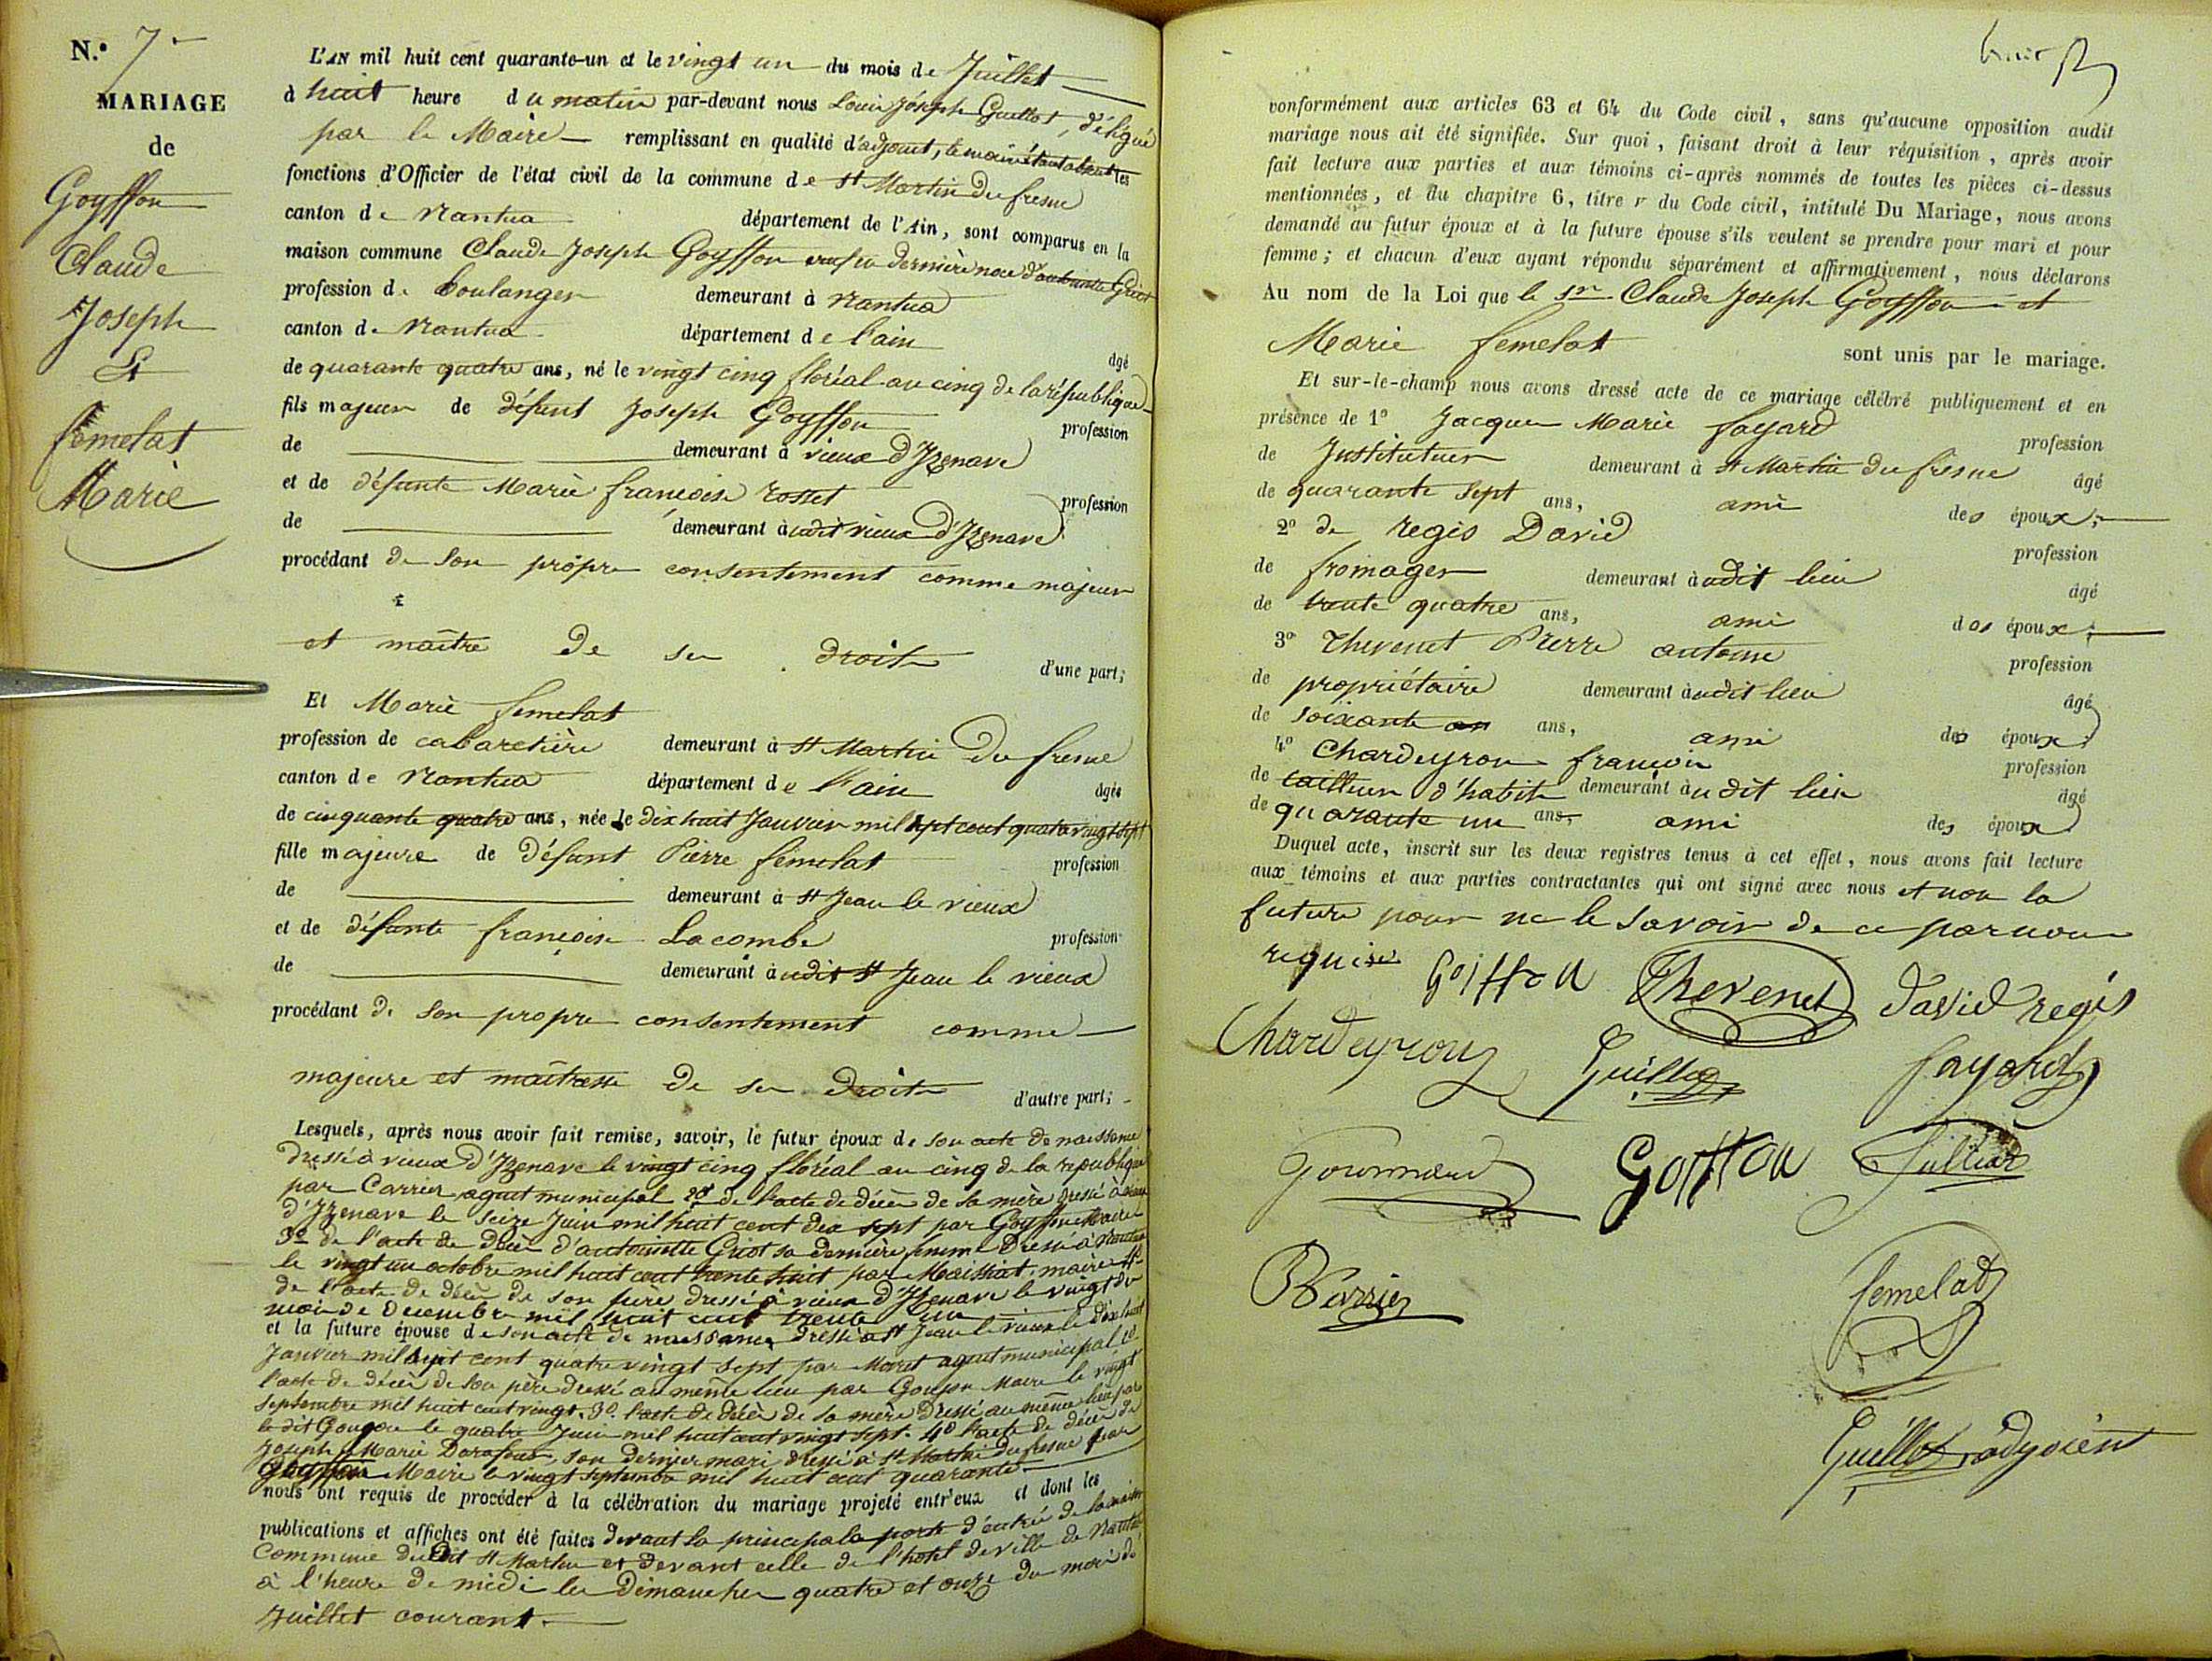 N.º 7
MARIAGE
de
Goyffon
Claude
Joseph
Et
femelat
Marie
L'AN mil huit cent quarante-un et le vingt un du mois de Juillet
à huit heure du matin par-devant nous Louis Joseph Guillot, délégué
par le Maire remplissant en qualité d'adjoint, le maire étant absent les
fonctions d'Officier de l'état civil de la commune de St Martin du fresne
canton de Nantua département de l'Ain, sont comparus en la
maison commune Claude Joseph Goyffon veuf en dernière noce d'antoinette Griot
profession de boulanger demeurant à Nantua
canton de Nantua département de l'ain âgé
de quarante quatre ans, né le vingt cinq floréal an cinq de la république
fils majeur de défunt Joseph Goyffon profession
de demeurant à vieux d'Izenave
et de défunte Marie françoise rosset profession
de demeurant à udit vieux d'Izenave
procédant de son propre consentement comme majeur
et maître de ses droits d'une part;
Et Marie femelat
profession de cabaretière demeurant à St Martin du fresne
canton de Nantua département de l'ain âgée
de cinquante quatre ans, née le dix huit Janvier mil sept cent quatre vingt sept
fille majeure de défunt Pierre femelat profession
de demeurant à St Jean le vieux
et de défunte françoise Lacombe profession
de demeurant à udit St Jean le vieux
procédant de son propre consentement comme
majeure et maîtresse de ses droits d'autre part;
Lesquels, après nous avoir fait remise, savoir, le futur époux de son acte de naissance
dressé à vieux d'Izenave le vingt cinq floréal an cinq de la république
par Carrier agent municipal 2º de l'acte de décès de sa mère dressé à vieux
d'Izenave le seize Juin mil huit cent dix sept par Goyffon Maire
3º de l'acte de décès d'antoinette Griot sa dernière femme dressé à Nantua
le vingt un octobre mil huit cent trente huit par Maissiat maire 4º
de l'acte de décès de son père dressé à vieux d'Izenave le vingt du
mois de Décembre mil huit cent trente un
et la future épouse de son acte de naissance dressé à St Jean le vieux le dix huit
Janvier mil sept cent quatre vingt sept par Moret agent municipal 2º
l'acte de décès de son père dressé au même lieu par Goujon Maire le vingt
septembre mil huit cent vingt. 3º l'acte de décès de sa mère dressé au même lieu par
le dit Goujon le quatre Juin mil huit cent vingt sept. 4º l'acte de décès de
Joseph Marie son dernier mari dressé à St Martin du fresne par
Maire le vingt septembre mil huit cent quarante
nous ont requis de procéder à la célébration du mariage projeté entr'eux et dont les
publications et affiches ont été faites devant la principale porte d'entrée de la maison
commune dudit St Martin et devant celle de l'hotel de ville de Nantua
à l'heure de midi les dimanches quatre et onze du mois de
Juillet courant.
huit
conformément aux articles 63 et 64 du Code civil, sans qu'aucune opposition audit
mariage nous ait été signifiée. Sur quoi, faisant droit à leur réquisition, après avoir
fait lecture aux parties et aux témoins ci-après nommés de toutes les pièces ci-dessus
mentionnées, et du chapitre 6, titre v du Code civil, intitulé Du Mariage, nous avons
demandé au futur époux et à la future épouse s'ils veulent se prendre pour mari et pour
femme; et chacun d'eux ayant répondu séparément et affirmativement, nous déclarons
Au nom de la Loi que le sr Claude Joseph Goyffon et
Marie femelat sont unis par le mariage.
Et sur-le-champ nous avons dressé acte de ce mariage célébré publiquement et en
présence de 1º Jacques Marie fayard profession
de Instituteur demeurant à St Martin du fresne âgé
de quarante sept ans, ami des époux;
2º de regis David profession
de fromager demeurant à udit lieu âgé
de trente quatre ans, ami des époux;
3º Thevenet Pierre antoine profession
de propriétaire demeurant à udit lieu âgé
de soixante ans, ami des époux;
4º Chardeyron françois profession
de tailleur d'habits demeurant à udit lieu âgé
de quarante un ans, ami des époux
Duquel acte, inscrit sur les deux registres tenus à cet effet, nous avons fait lecture
aux témoins et aux parties contractantes qui ont signé avec nous et non la
future pour ne le savoir de ce par nous
requise
Goiffon Thevenet David regis
Chardeyron Guillot fayard
Gourmand Goiffon Julliard
femelat
Guillot, adjoient